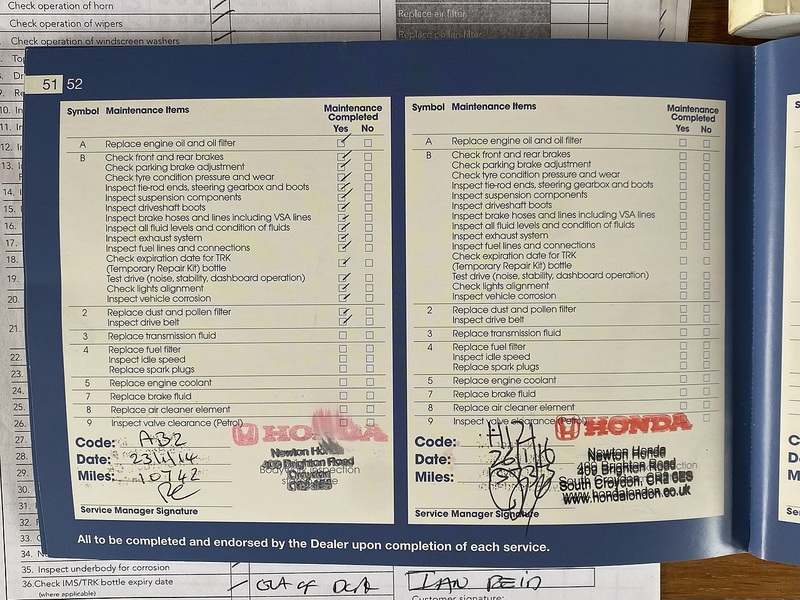 Check operation of horn
Check operation of wipers
Check operation of windscreen washers
Replace air filter
Replace pollen filter
51 52
Symbol Maintenance Items Maintenance Completed
Yes No
A Replace engine oil and oil filter
B Check front and rear brakes
Check parking brake adjustment
Check tyre condition pressure and wear
Inspect tie-rod ends, steering gearbox and boots
Inspect suspension components
Inspect driveshaft boots
Inspect brake hoses and lines including VSA lines
Inspect all fluid levels and condition of fluids
Inspect exhaust system
Inspect fuel lines and connections
Check expiration date for TRK
(Temporary Repair Kit) bottle
Test drive (noise, stability, dashboard operation)
Check lights alignment
Inspect vehicle corrosion
2 Replace dust and pollen filter
Inspect drive belt
3 Replace transmission fluid
4 Replace fuel filter
Inspect idle speed
Replace spark plugs
5 Replace engine coolant
7 Replace brake fluid
8 Replace air cleaner element
9 Inspect valve clearance (Petrol)
HONDA
Code: AB2
Date:
Miles: 10742
Newton Honda
400 Brighton Road
Croydon
Service Manager Signature
Symbol Maintenance Items Maintenance Completed
Yes No
A Replace engine oil and oil filter
B Check front and rear brakes
Check parking brake adjustment
Check tyre condition pressure and wear
Inspect tie-rod ends, steering gearbox and boots
Inspect suspension components
Inspect driveshaft boots
Inspect brake hoses and lines including VSA lines
Inspect all fluid levels and condition of fluids
Inspect exhaust system
Inspect fuel lines and connections
Check expiration date for TRK
(Temporary Repair Kit) bottle
Test drive (noise, stability, dashboard operation)
Check lights alignment
Inspect vehicle corrosion
2 Replace dust and pollen filter
Inspect drive belt
3 Replace transmission fluid
4 Replace fuel filter
Inspect idle speed
Replace spark plugs
5 Replace engine coolant
7 Replace brake fluid
8 Replace air cleaner element
9 Inspect valve clearance (Petrol)
HONDA
Code:
Date:
Miles:
Newton Honda
400 Brighton Road
South Croydon, CR2 6ES
www.hondalondon.co.uk
Service Manager Signature
All to be completed and endorsed by the Dealer upon completion of each service.
35. Inspect underbody for corrosion
36. Check IMS/TRK bottle expiry date
(where applicable)
OUT OF DATE
IAN REID
Customer signature: